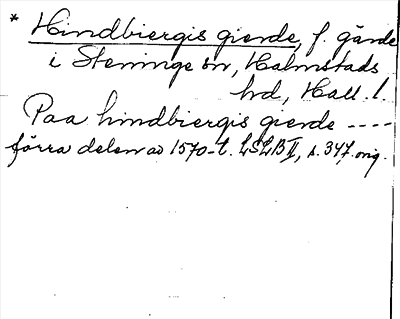 * Hindbiergis gierde, f. gärde
i Steninge sn, Halmstads
hd, Hall. l.
Paa hindbiergis gierde ----
förra delen av 1570-t. LSLB II, s. 347, orig.